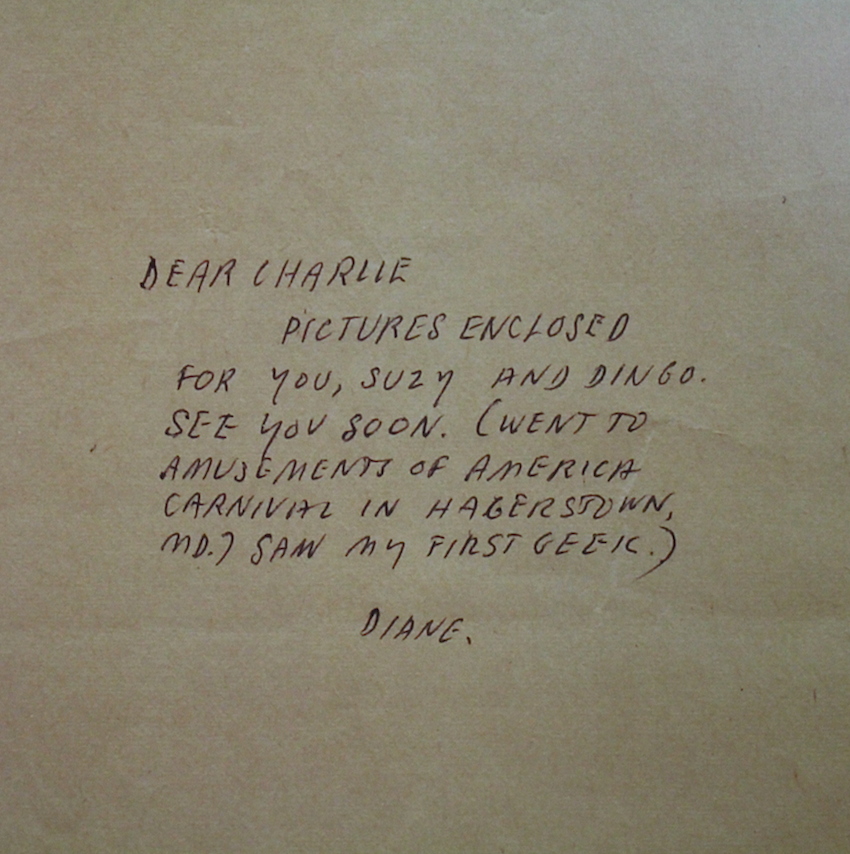 DEAR CHARLIE
PICTURES ENCLOSED
FOR YOU, SUZY AND DINGO.
SEE YOU SOON. (WENT TO
AMUSEMENTS OF AMERICA
CARNIVAL IN HAGERSTOWN,
MD.) SAW MY FIRST GEEK.)
DIANE.